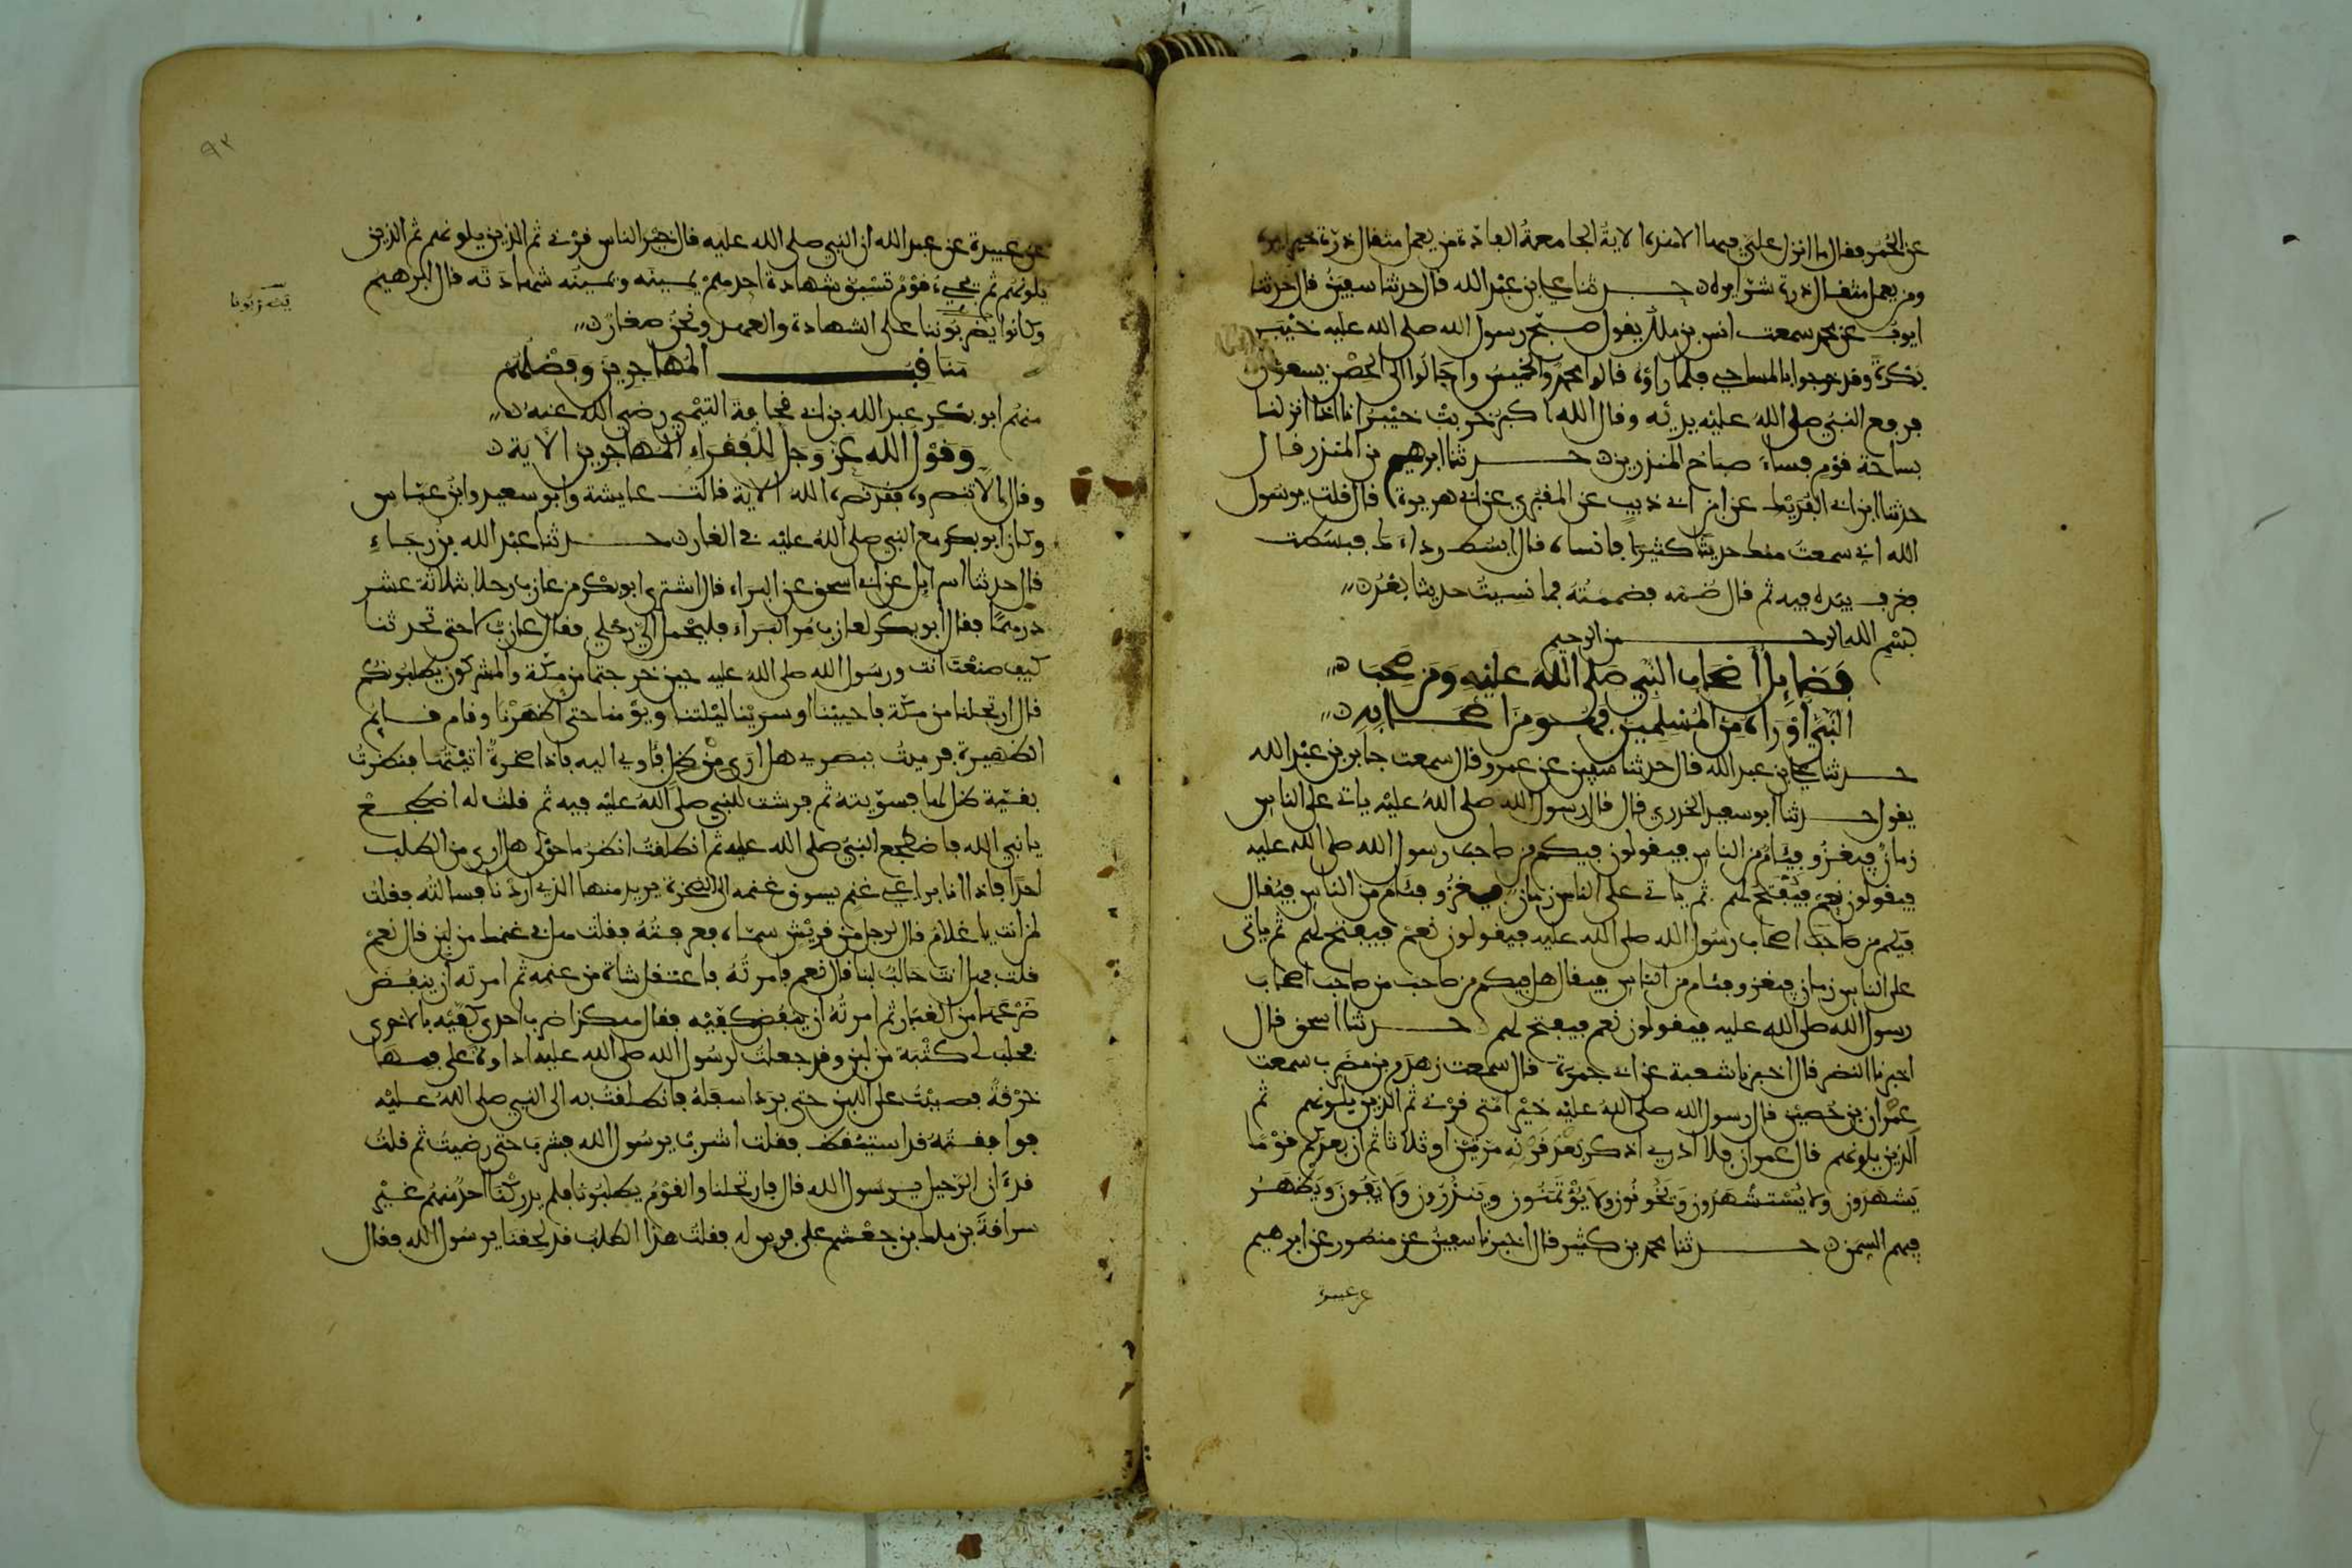 عن الحمر فقال ما انزل علي فيها الا هذه الاية الجامعة الفاذة فمن يعمل مثقال ذرة خيرا يره
ومن يعمل مثقال ذرة شرا يره حدثنا علي ابن عبد الله قال حدثنا سفين قال حدثنا
ايوب عن محمد سمعت انس بن ملك يقول صبح رسول الله صلى الله عليه خيبر
بكرة وقد خرجوا بالمساحي فلما راوه قالوا محمد والخميس واجالوا الى الحصن يسعون
فرفع النبي صلى الله عليه يديه وقال الله اكبر خربت خيبر انا اذا انزلنا
بساحة قوم فساء صباح المنذرين حدثنا ابرهيم بن المنذر قال
حدثنا ابن ابي الفديك عن ابن ابي ذيب عن المقبري عن ابي هريرة قال قلت يرسول
الله اني سمعت منك حديثا كثيرا فانساه قال ابسط رداءك فبسطت
فغرف بيده فيه ثم قال ضمه فضممته فما نسيت حديثا بعد
بسم الله الرحمن الرحيم
فضايل اصحاب النبي صلى الله عليه ومن صحب
النبي او راه من المسلمين فهو من اصحابه
حدثنا علي بن عبد الله قال حدثنا سفين عن عمرو قال سمعت جابر بن عبد الله
يقول حدثنا ابو سعيد الخدري قال قال رسول الله صلى الله عليه ياتي على الناس
زمان فيغزو فيام من الناس فيقولون فيكم من صاحب رسول الله صلى الله عليه
فيقولون نعم فيفتح لهم ثم ياتي على الناس زمان فيغزو فيام من الناس فيقال
فيكم من صاحب اصحاب رسول الله صلى الله عليه فيقولون نعم فيفتح لهم ثم ياتي
على الناس زمان فيغزو فيام من الناس فيقال هل فيكم من صاحب من صاحب اصحاب
رسول الله صلى الله عليه فيقولون نعم فيفتح لهم حدثنا اسحق قال
اخبرنا النضر قال اخبرنا شعبة عن ابي جمرة قال سمعت زهدم بن مضرب سمعت
عمران بن حصين قال رسول الله صلى الله عليه خير امتي قرني ثم الذين يلونهم ثم
الذين يلونهم قال عمران فلا ادري اذكر بعد قرنه مرتين او ثلاثا ثم ان بعدكم قوما
يشهدون ولا يستشهدون ويخونون ولا يؤتمنون وينذرون ولا يفون ويظهر
فيهم السمن حدثنا محمد بن كثير قال اخبرنا سفين عن منصور عن ابرهيم
عن عبيدة
٩٢
عن عبيدة عن عبد الله ان النبي صلى الله عليه قال خير الناس قرني ثم الذين يلونهم ثم الذين
يلونهم ثم يجيء قوم تسبق شهادة احدهم يمينه ويمينه شهادته قال ابرهيم
وكانوا يضربوننا على الشهادة والعهد ونحن صغار
مناقب المهاجرين وفضلهم
منهم ابو بكر عبد الله بن ابي قحافة التيمي رضي الله عنه
وقول الله عز وجل للفقراء المهاجرين الاية
وقال الا تنصروه فقد نصره الله الاية قالت عايشة وابو سعيد وابن عباس
وكان ابو بكر مع النبي صلى الله عليه في الغار حدثنا عبد الله بن رجاء
قال حدثنا اسرايل عن ابي اسحق عن البراء قال اشترى ابو بكر من عازب رحلا بثلاثة عشر
درهما فقال ابو بكر لعازب مر البراء فليحمل الي رحلي فقال عازب لا حتى تحدثنا
كيف صنعت انت ورسول الله صلى الله عليه حين خرجتما من مكة والمشركون يطلبونكم
قال ارتحلنا من مكة فاحيينا او سرينا ليلتنا ويومنا حتى اظهرنا وقام قايم
الظهيرة فرميت ببصري هل ارى من ظل فاوي اليه فاذا صخرة اتيتها فنظرت
بقية ظل لها فسويته ثم فرشت للنبي صلى الله عليه فيه ثم قلت له اضطجع
يا نبي الله فاضطجع النبي صلى الله عليه ثم انطلقت انظر ما حولي هل ارى من الطلب
احدا فاذا انا براعي غنم يسوق غنمه الى الصخرة يريد منها الذي اردنا فسالته فقلت
لمن انت يا غلام قال لرجل من قريش سماه فعرفته فقلت هل في غنمك من لبن قال نعم
قلت فهل انت حالب لنا قال نعم فامرته فاعتقل شاة من غنمه ثم امرته ان ينفض
ضرعها من الغبار ثم امرته ان ينفض كفيه فقال هكذا ضرب احدى كفيه بالاخرى
فحلب لي كثبة من لبن وقد جعلت لرسول الله صلى الله عليه اداوة على فمها
خرقة فصببت على اللبن حتى برد اسفله فانطلقت به الى النبي صلى الله عليه
فوافقته قد استيقظ فقلت اشرب يرسول الله فشرب حتى رضيت ثم قلت
قد ان الرحيل يرسول الله قال فارتحلنا والقوم يطلبوننا فلم يدركنا احد منهم غير
سراقة بن ملك بن جعشم على فرس له فقلت هذا الطلب قد لحقنا يرسول الله فقال